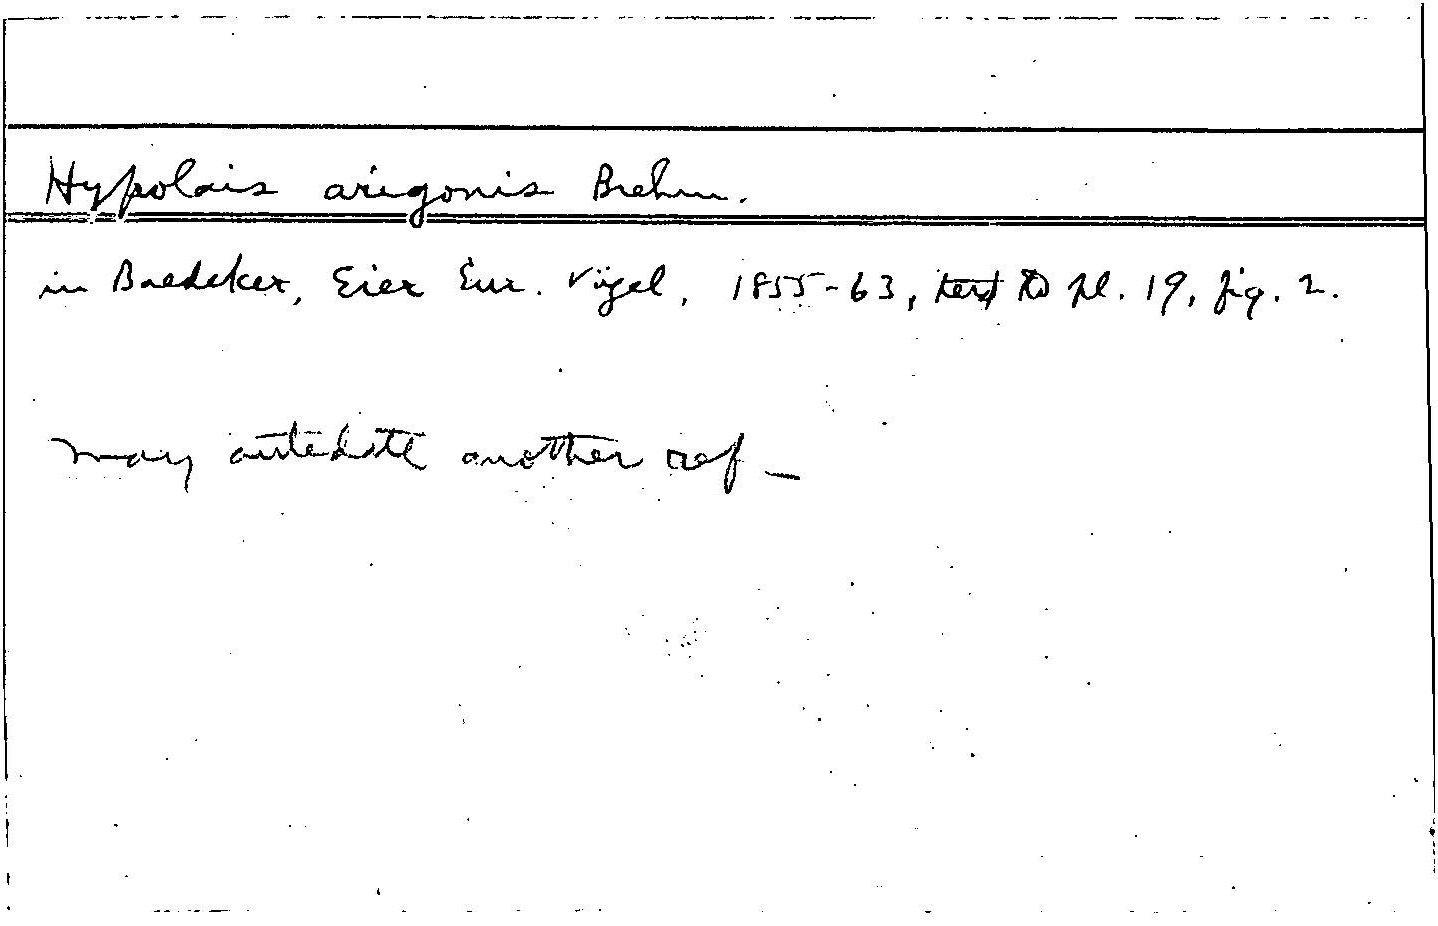 Hypolais arigonis Brehm.
in Baedeker, Eier Eur. Vögel, 1855-63, text to pl. 19, fig. 2.
may antedate another ref —